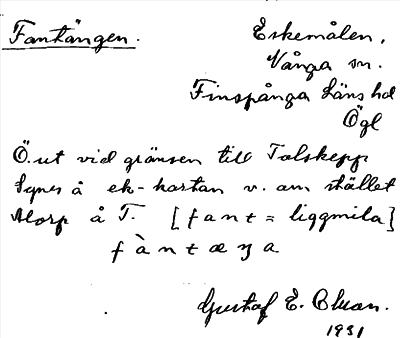 Fantängen.
Eskemålen,
Vånga sn.
Finspånga Läns hd
Ögl
Ö. ut vid gränsen till Tolskepp
Synes å ek-kartan v. om stället
Morp å T. [fant = liggmila]
fàntæŋa
Gustaf E.
1931